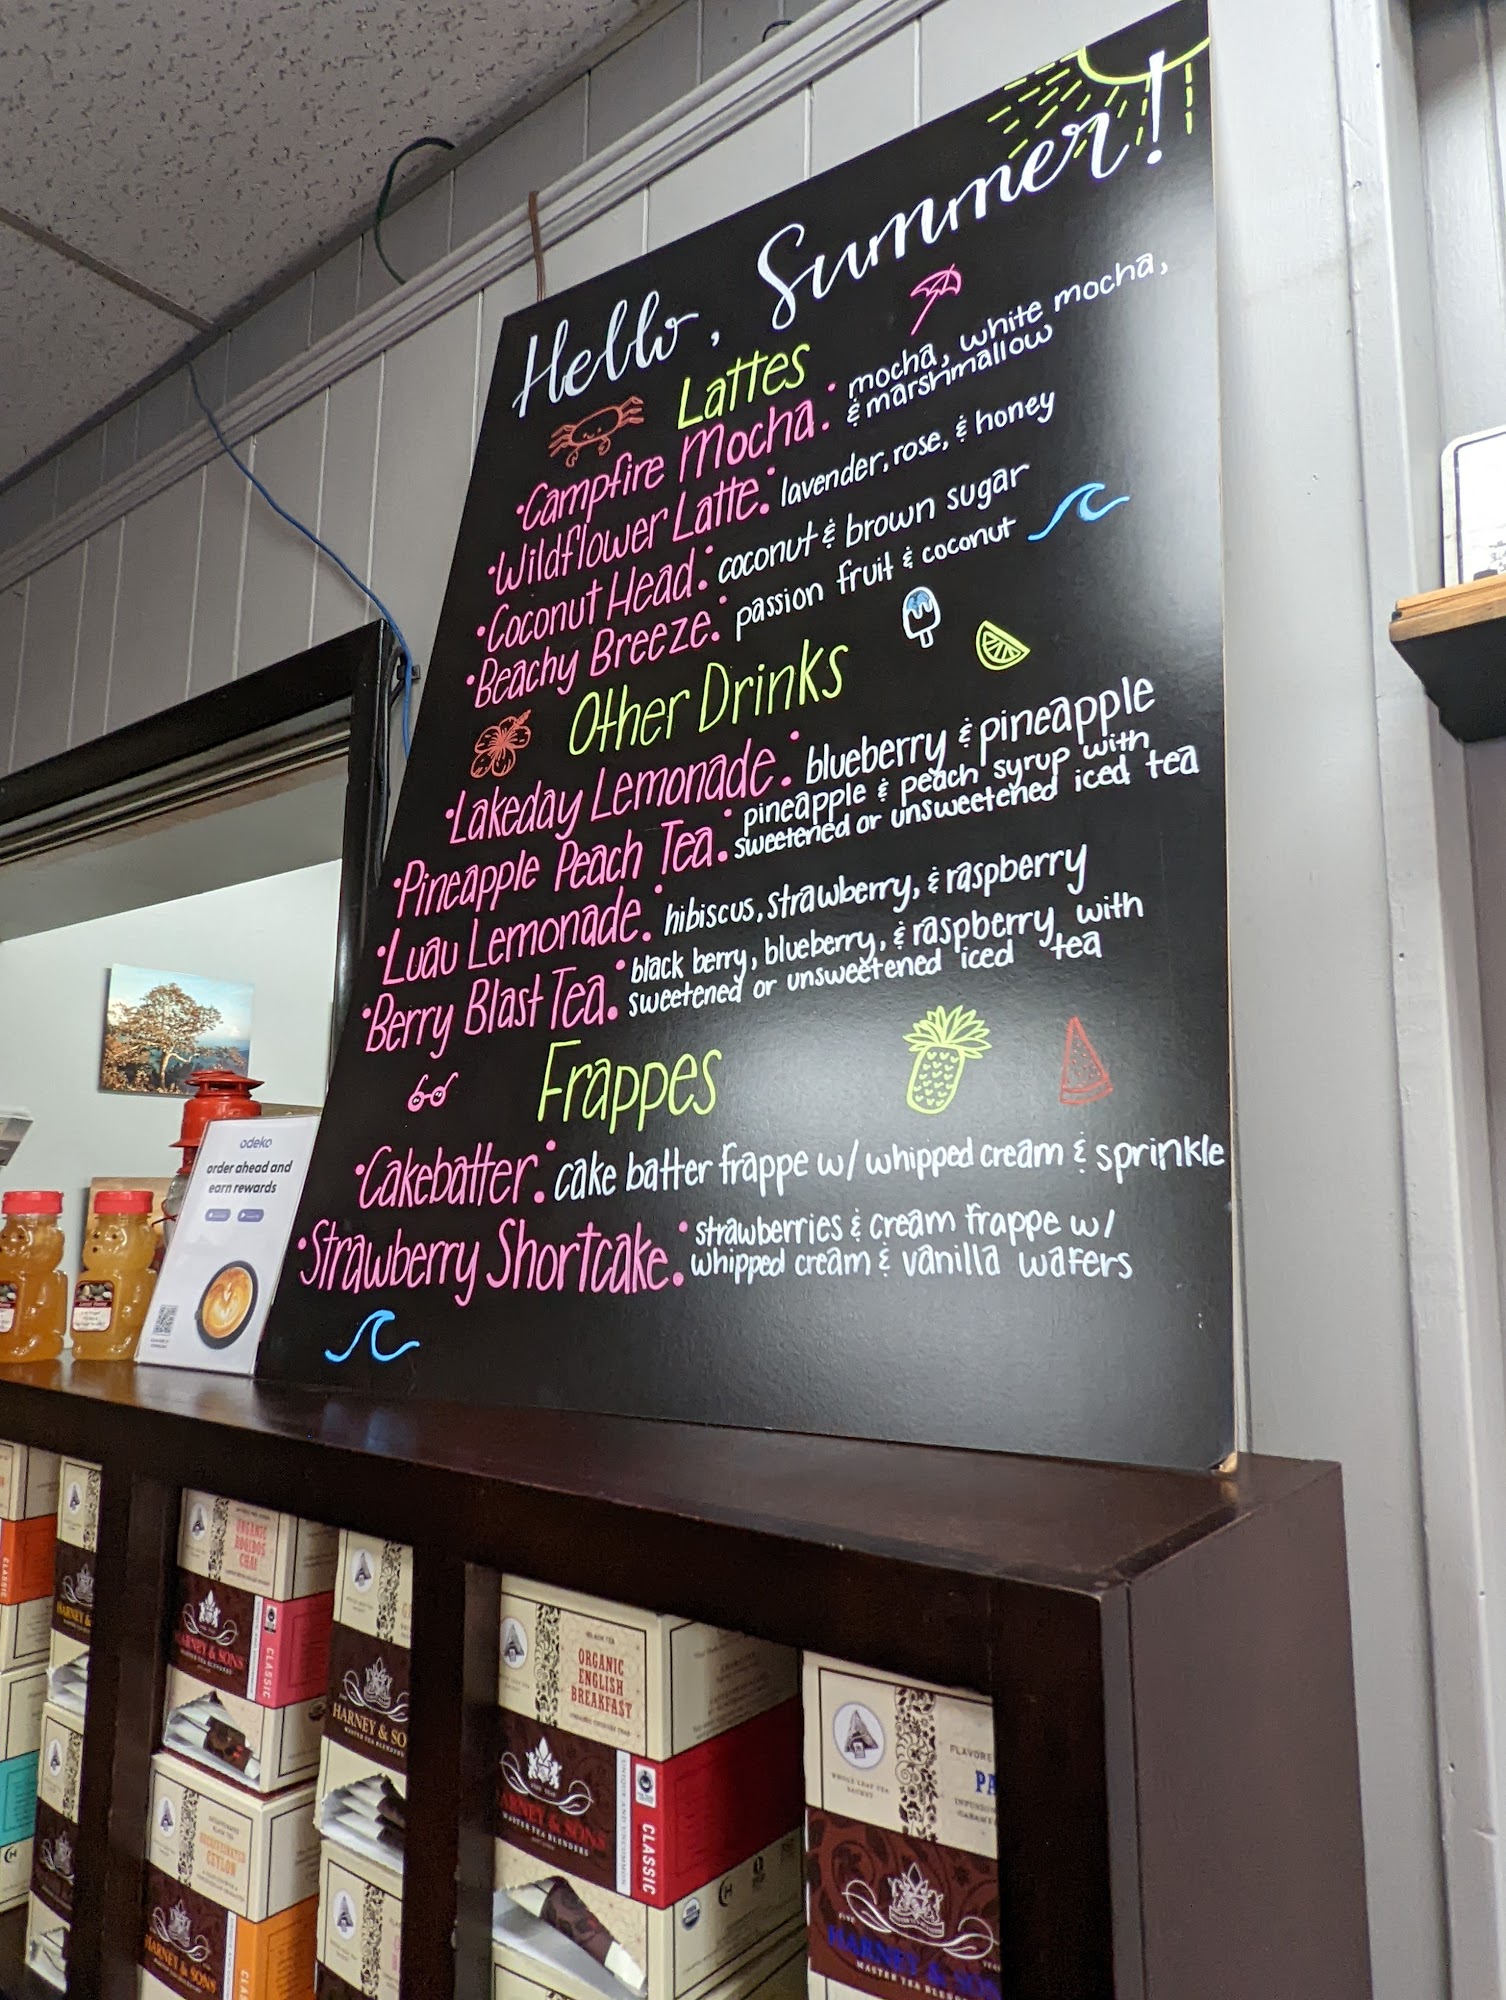 Hello, Summer!
Lattes
•Campfire Mocha: mocha, white mocha,
& marshmallow
•Wildflower Latte: lavender, rose, & honey
•Coconut Head: coconut & brown sugar
•Beachy Breeze: passion fruit & coconut
Other Drinks
•Lakeday Lemonade: blueberry & pineapple
•Pineapple Peach Tea: pineapple & peach syrup with
sweetened or unsweetened iced tea
•Luau Lemonade: hibiscus, strawberry, & raspberry
•Berry Blast Tea: black berry, blueberry, & raspberry with
sweetened or unsweetened iced tea
Frappes
•Cakebatter: cake batter frappe w/ whipped cream & sprinkle
•Strawberry Shortcake: strawberries & cream frappe w/
whipped cream & vanilla wafers
odeko
order ahead and
earn rewards
ORGANIC
ROOIBOS
CHAI
HARNEY & SONS
CLASSIC
CLASSIC
HARNEY & SO
MASTER TEA BLENDERS
BLACK TEA
ORGANIC
ENGLISH
BREAKFAST
HARNEY & SONS
MASTER TEA BLENDERS
UNIQUE AND UNCOMMON
CLASSIC
DECAFFEINATED
CEYLON
HARNEY & SONS
WHOLE LEAF TEA
SACHET
FLAVORE
PA
HARNEY & SONS
MASTER TEA BLENDERS